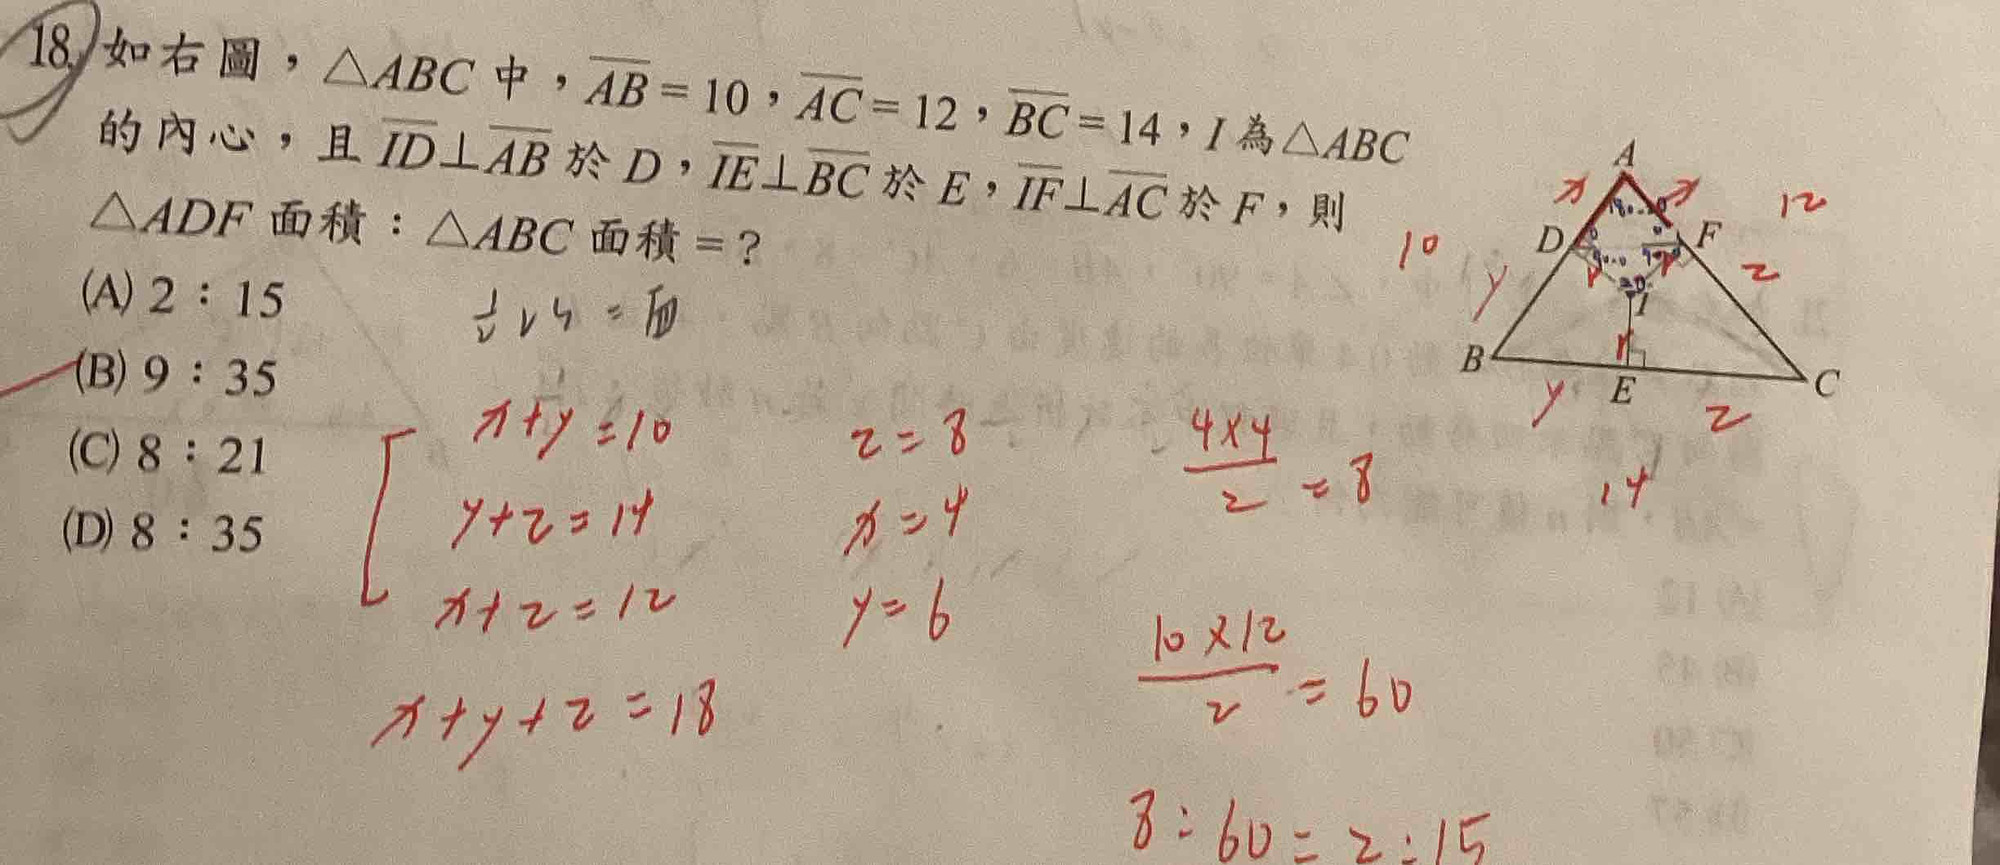 18. 如右圖，△ABC 中，AB = 10，AC = 12，BC = 14，I 為△ABC
的內心，且 ID⊥AB 於 D，IE⊥BC 於 E，IF⊥AC 於 F，則
△ADF 面積：△ABC 面積 = ?
(A) 2：15
(B) 9：35
(C) 8：21
(D) 8：35
x+y=10
y+z=14
x+z=12
x+y+z=18
z=8
x=4
y=6
4×4/2=8
10×12/2=60
8:60=2:15
A
x x
12
10
D F
y z
I
r r
r
B E C
y z
14